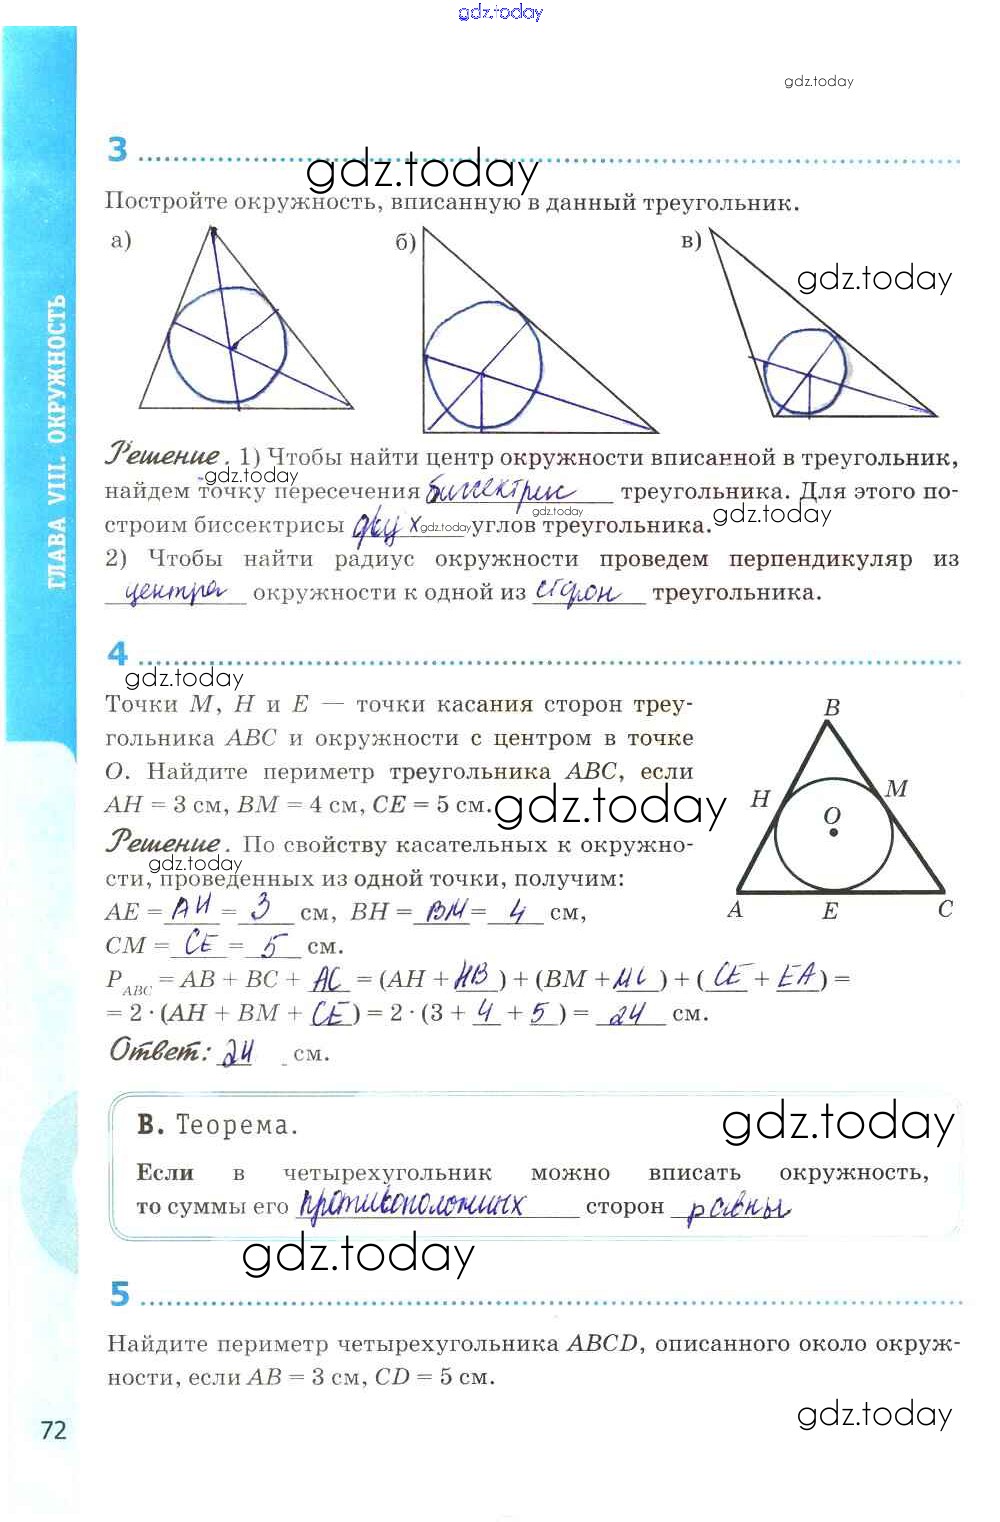 gdz.today
gdz.today
3
gdz.today
Постройте окружность, вписанную в данный треугольник.
а) б) в)
gdz.today
Решение. 1) Чтобы найти центр окружности вписанной в треугольник,
gdz.today
найдем точку пересечения биссектрис треугольника. Для этого по-
gdz.today
gdz.today
строим биссектрисы двух углов треугольника.
gdz.today
2) Чтобы найти радиус окружности проведем перпендикуляр из
центра окружности к одной из сторон треугольника.
4
gdz.today
Точки M, H и E — точки касания сторон треу-
гольника ABC и окружности с центром в точке
O. Найдите периметр треугольника ABC, если
AH = 3 см, BM = 4 см, CE = 5 см.
gdz.today
B
H
M
O
A
E
C
Решение. По свойству касательных к окружно-
gdz.today
сти, проведенных из одной точки, получим:
AE = AH = 3 см, BH = BM = 4 см,
CM = CE = 5 см.
P ABC = AB + BC + AC = (AH + HB) + (BM + MC) + (CE + EA) =
= 2 · (AH + BM + CE) = 2 · (3 + 4 + 5) = 24 см.
Ответ: 24 см.
В. Теорема.
gdz.today
Если в четырехугольник можно вписать окружность,
то суммы его противоположных сторон равны
gdz.today
5
Найдите периметр четырехугольника ABCD, описанного около окруж-
ности, если AB = 3 см, CD = 5 см.
gdz.today
72
ГЛАВА VIII. ОКРУЖНОСТЬ